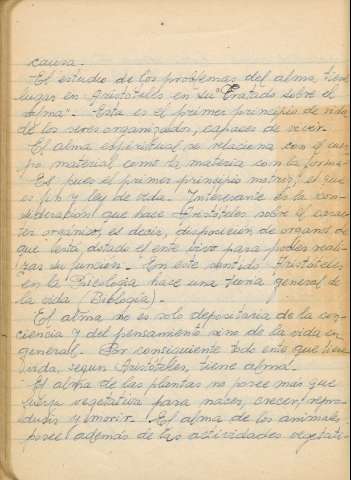 causa.
El estudio de los problemas del alma, tiene
lugar en Aristóteles en su "Tratado sobre el
alma". Esta es el primer principio de vida
de los seres organizados, capaces de vivir.
El alma espiritual se relaciona con el cuer-
po material como la materia con la forma.
Es pues el primer principio motriz, el que
es fin y ley de vida. Interesante es la con-
sideración que hace Aristóteles sobre el carac-
ter orgánico, es decir, disposición de organos de
que está dotado el ente vivo para poder reali-
zar su función. En este sentido Aristóteles
en la Psicología hace una teoría general de
la vida (Biología).
El alma no es solo depositaria de la con-
ciencia y del pensamiento sino de la vida en
general. Por consiguiente todo ente que tiene
vida, segun Aristóteles, tiene alma.
El alma de las plantas no posee mas que
fuerza vegetativa para nacer, crecer, repro-
ducir y morir. El alma de los animales
posee además de las actividades vegetati-